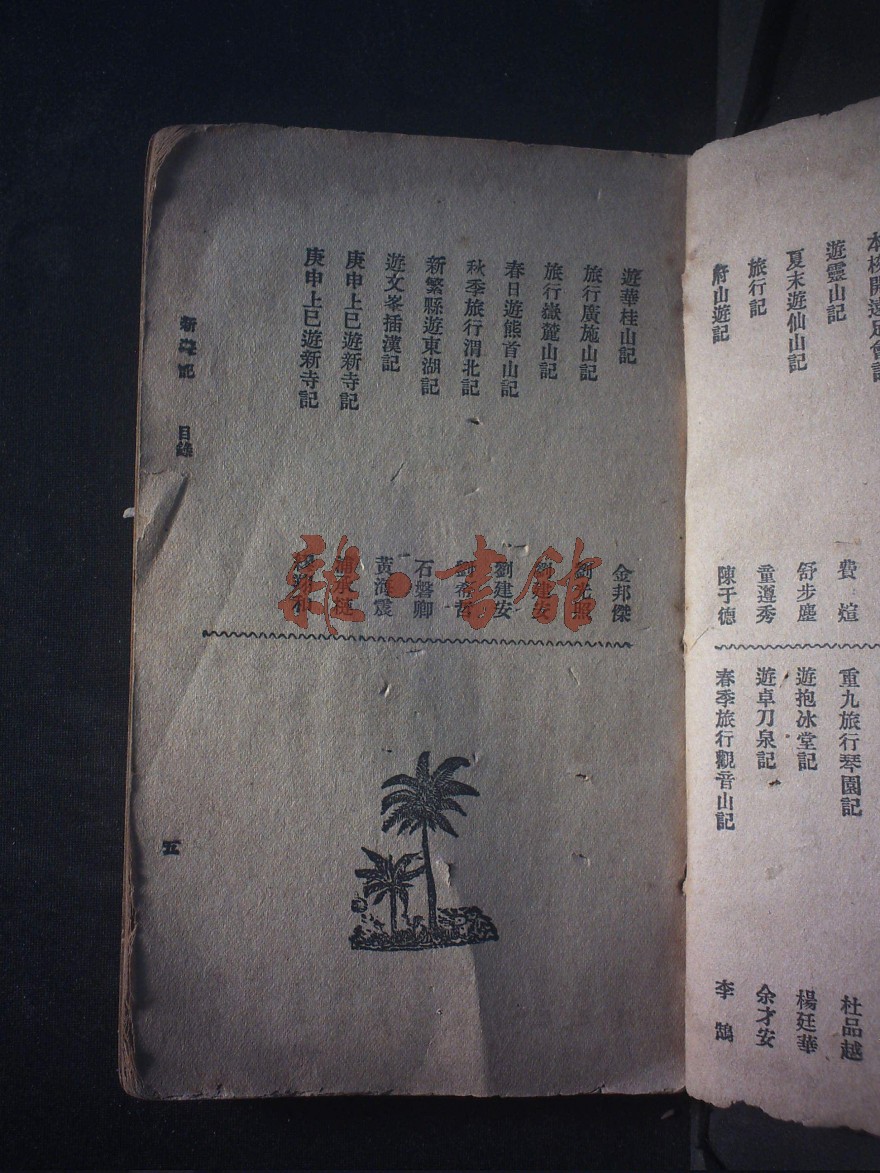 遊靈山記
費煊
夏末遊仙山記
舒步塵
旅行記
童遵秀
府山遊記
陳于德
重九旅行琴園記
杜品越
遊抱冰堂記
楊廷華
遊卓刀泉記
余才安
春季旅行觀音山記
李鵠
遊華桂山記
金邦傑
旅行廣施山記
劉光照
旅行嶽麓山記
劉建安
春日遊熊首山記
劉建安
秋季旅行渭北記
新繁縣遊東湖記
石磐卿
遊文峯插漢記
黃海震
庚申上巳遊新寺記
庚申上巳遊新寺記
目錄
五
雜·書館